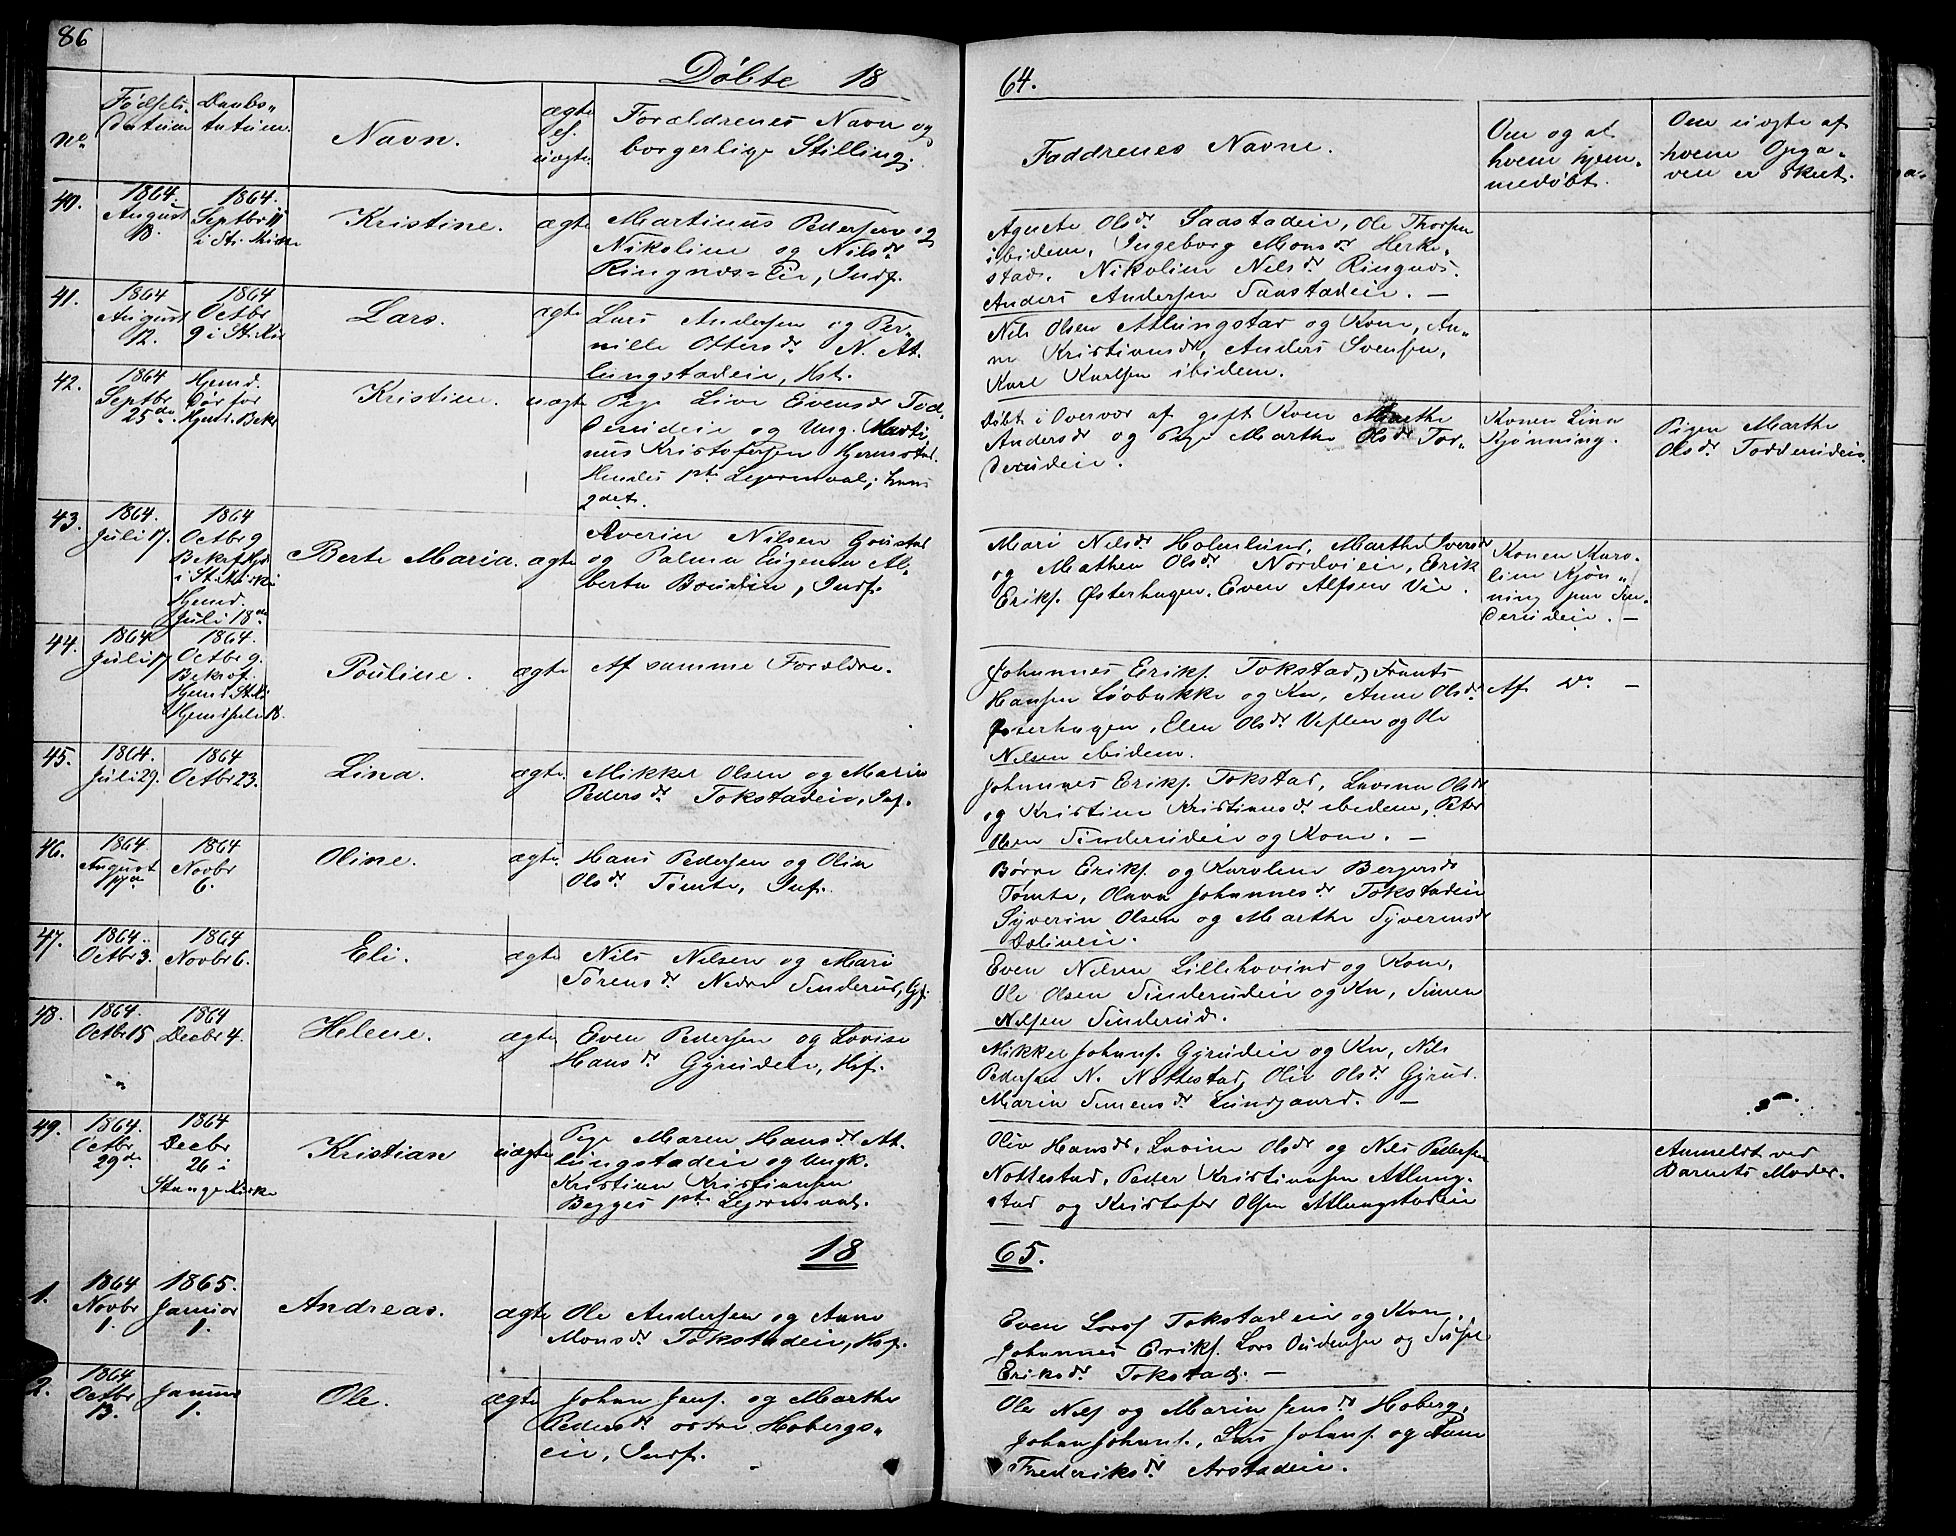 86
Døbte 18
64.
No
Fødsels-
datum
Daabs-
datum.
Navn.
ægte
el.
uægte.
Forældrenes Navn og
borgerlige Stilling.
Faddrenes Navne.
Om og af
hvem hjem-
medøbt.
Om uægte af
hvem Opga-
ven er skeet.
40.
1864.
August
18.
1864.
Septbr 11
i St.
Kristine.
ægte
Martinus Pedersen og
Nikoline og Nilsdr
Ringnæs-Eie, Indf.
Agnete Olsdr Saastadeie, Ole Thorsen
ibidem, Ingeborg Monsdr Herke-
stad. Nikoline Nelsdr Ringnæs.
Anders Andersen Saastadeie. —
41.
1864
August
12.
1864
Octbr
9 i St.
Lars.
ægte
Lars Andersen og Per-
nille Ottersdr N. At-
lungstadeie, Hst.
Nils Olsen Atlungstad og Kone, An-
ne Kristiansdr, Anders Svensen,
Karl Karlsen ibidem.
42.
1864
Septbr
25de
Hjemd.
Død før
Hjemd. Bekr
Kristine.
uægte
Pige Live Evensdr Tod-
derudeie og Ung. Marti-
nus Kristofersen Hjermstad.
Hendes 1ste Leiermaal, hans
2det.
Døbt i Overvær af gift Kone Marthe
Andersdr og Pige Marthe Olsdr Tod-
derudeie.
Konen Lina
Kjønning.
Pigen Marthe
Olsdr Todderudeie.
43.
1864.
Juli 17.
1864
Octbr 9
Bekræf. Hjd
i St. Kirke
Hjemd.
Juli 18de
Berte Maria.
ægte
Averin Nilsen Gaustad
og Palma Eugenia Al-
berta Boudin, Indf.
Mari Nelsdr Holmlund, Marthe Iversdr
og Mathea Olsdr Nordvieie, Erik
Eriks. Østerhagen. Even Alfsen Vie.
Konen Karo-
line Kjøn-
ning paa Sin-
derudeie. —
44.
1864
Juli 17
1864.
Octbr 9.
Bekræf.
Hjemd St. Ki
Hjemd Juli 18.
Pouline.
ægte
Af samme Forældre.
Johannes Eriks. Tokstad, Frants
Hansen Løbakke og Kn, Anne Olsdr
Østerhagen, Elen Olsdr Veflen og Ole
Nelsen ibidem.
Af Do —
45.
1864.
Juli 29.
1864
Octbr 23.
Lina.
ægte.
Mikkel Olsen og Marie
Pedersdr Tokstadeie, Inf.
Johannes Eriks. Tokstad, Lovina Olsdr
og Kristine Kristiansdr ibidem, Peter
Olsen Sinderudeie og Kone. —
46.
1864.
August
17de
1864
Novbr
6.
Oline.
ægte.
Hans Pedersen og Olia
Olsdr Tømte, Inf.
Børre Eriks. og Karoline Bergersdr
Tømte, Olava Johannesdr Tokstadeie
Syverin Olsen og Marthe Syverinsdr
Doliveie.
47.
1864.
Octbr 3.
1864
Novbr 6.
Eli.
ægte
Nils Nelsen og Mari
Sørensdr Nedre Sinderud, Gf.
Even Nelsen Lillehovind og Kone,
Ole Olsen Sinderudeie og Kn, Simen
Nelsen Sinderud.
48.
1864.
Octbr 15
1864
Decbr 4.
Helene.
ægte
Even Pedersen og Lovise
Hansdr Gjørudeie, Hsf.
Mikkel Johans. Gjørudeie og Kn, Nils
Pedersen N. Nøttestad, Oliv Olsdr Gjørud.
Marie Simensdr Lundgaard. —
49.
1864.
Octbr
29de
1864
Decbr
26 i
Stange Kirke
Kristian
uægte
Pige Maren Hansdr At-
lungstadeie og Ungk.
Kristian Kristiansen
Begges 1ste Leiermaal.
Oliv Hansdr, Lovine Olsdr og Nils Pedersen
Nøttestad, Peder Kristiansen Atlung-
stad og Kristofer Olsen Atlungstadeie
Anmeldt ved
Barnets Moder.
18
65.
1.
1864
Novbr
1.
1865.
Januar
1.
Andreas.
ægte
Ole Andersen og Anne
Monsdr Tokstadeie, Hsf.
Even Lars. Tokstadeie og Kone,
Johannes Eriks. Lars Oudensen og
Eriksdr Tokstad. —
2.
1864
Octbr
13.
Januar
1.
Ole.
ægte
Johan Jens. og Marthe
Pedersdr østre Hobergs-
eie, Indf.
Ole Nels. og Marie Jensdr Hoberg,
Johan Johans., Lars Johans. og Anne
Frederiksdr Arstadeie.